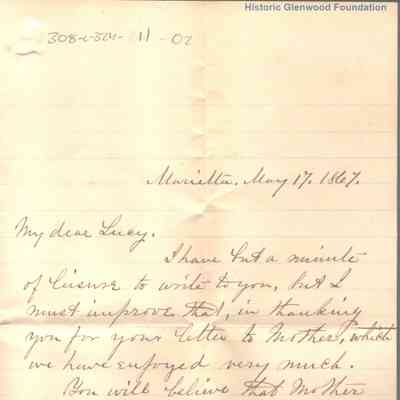 Historic Glenwood Foundation
308-1-301- 11 -02
Marietta, May 17. 1867.
My dear Lucy.
I have but a minute
of leisure to write to you, but I
must improve that, in thanking
you for your letter to Mother, which
we have enjoyed very much.
You will believe that Mother